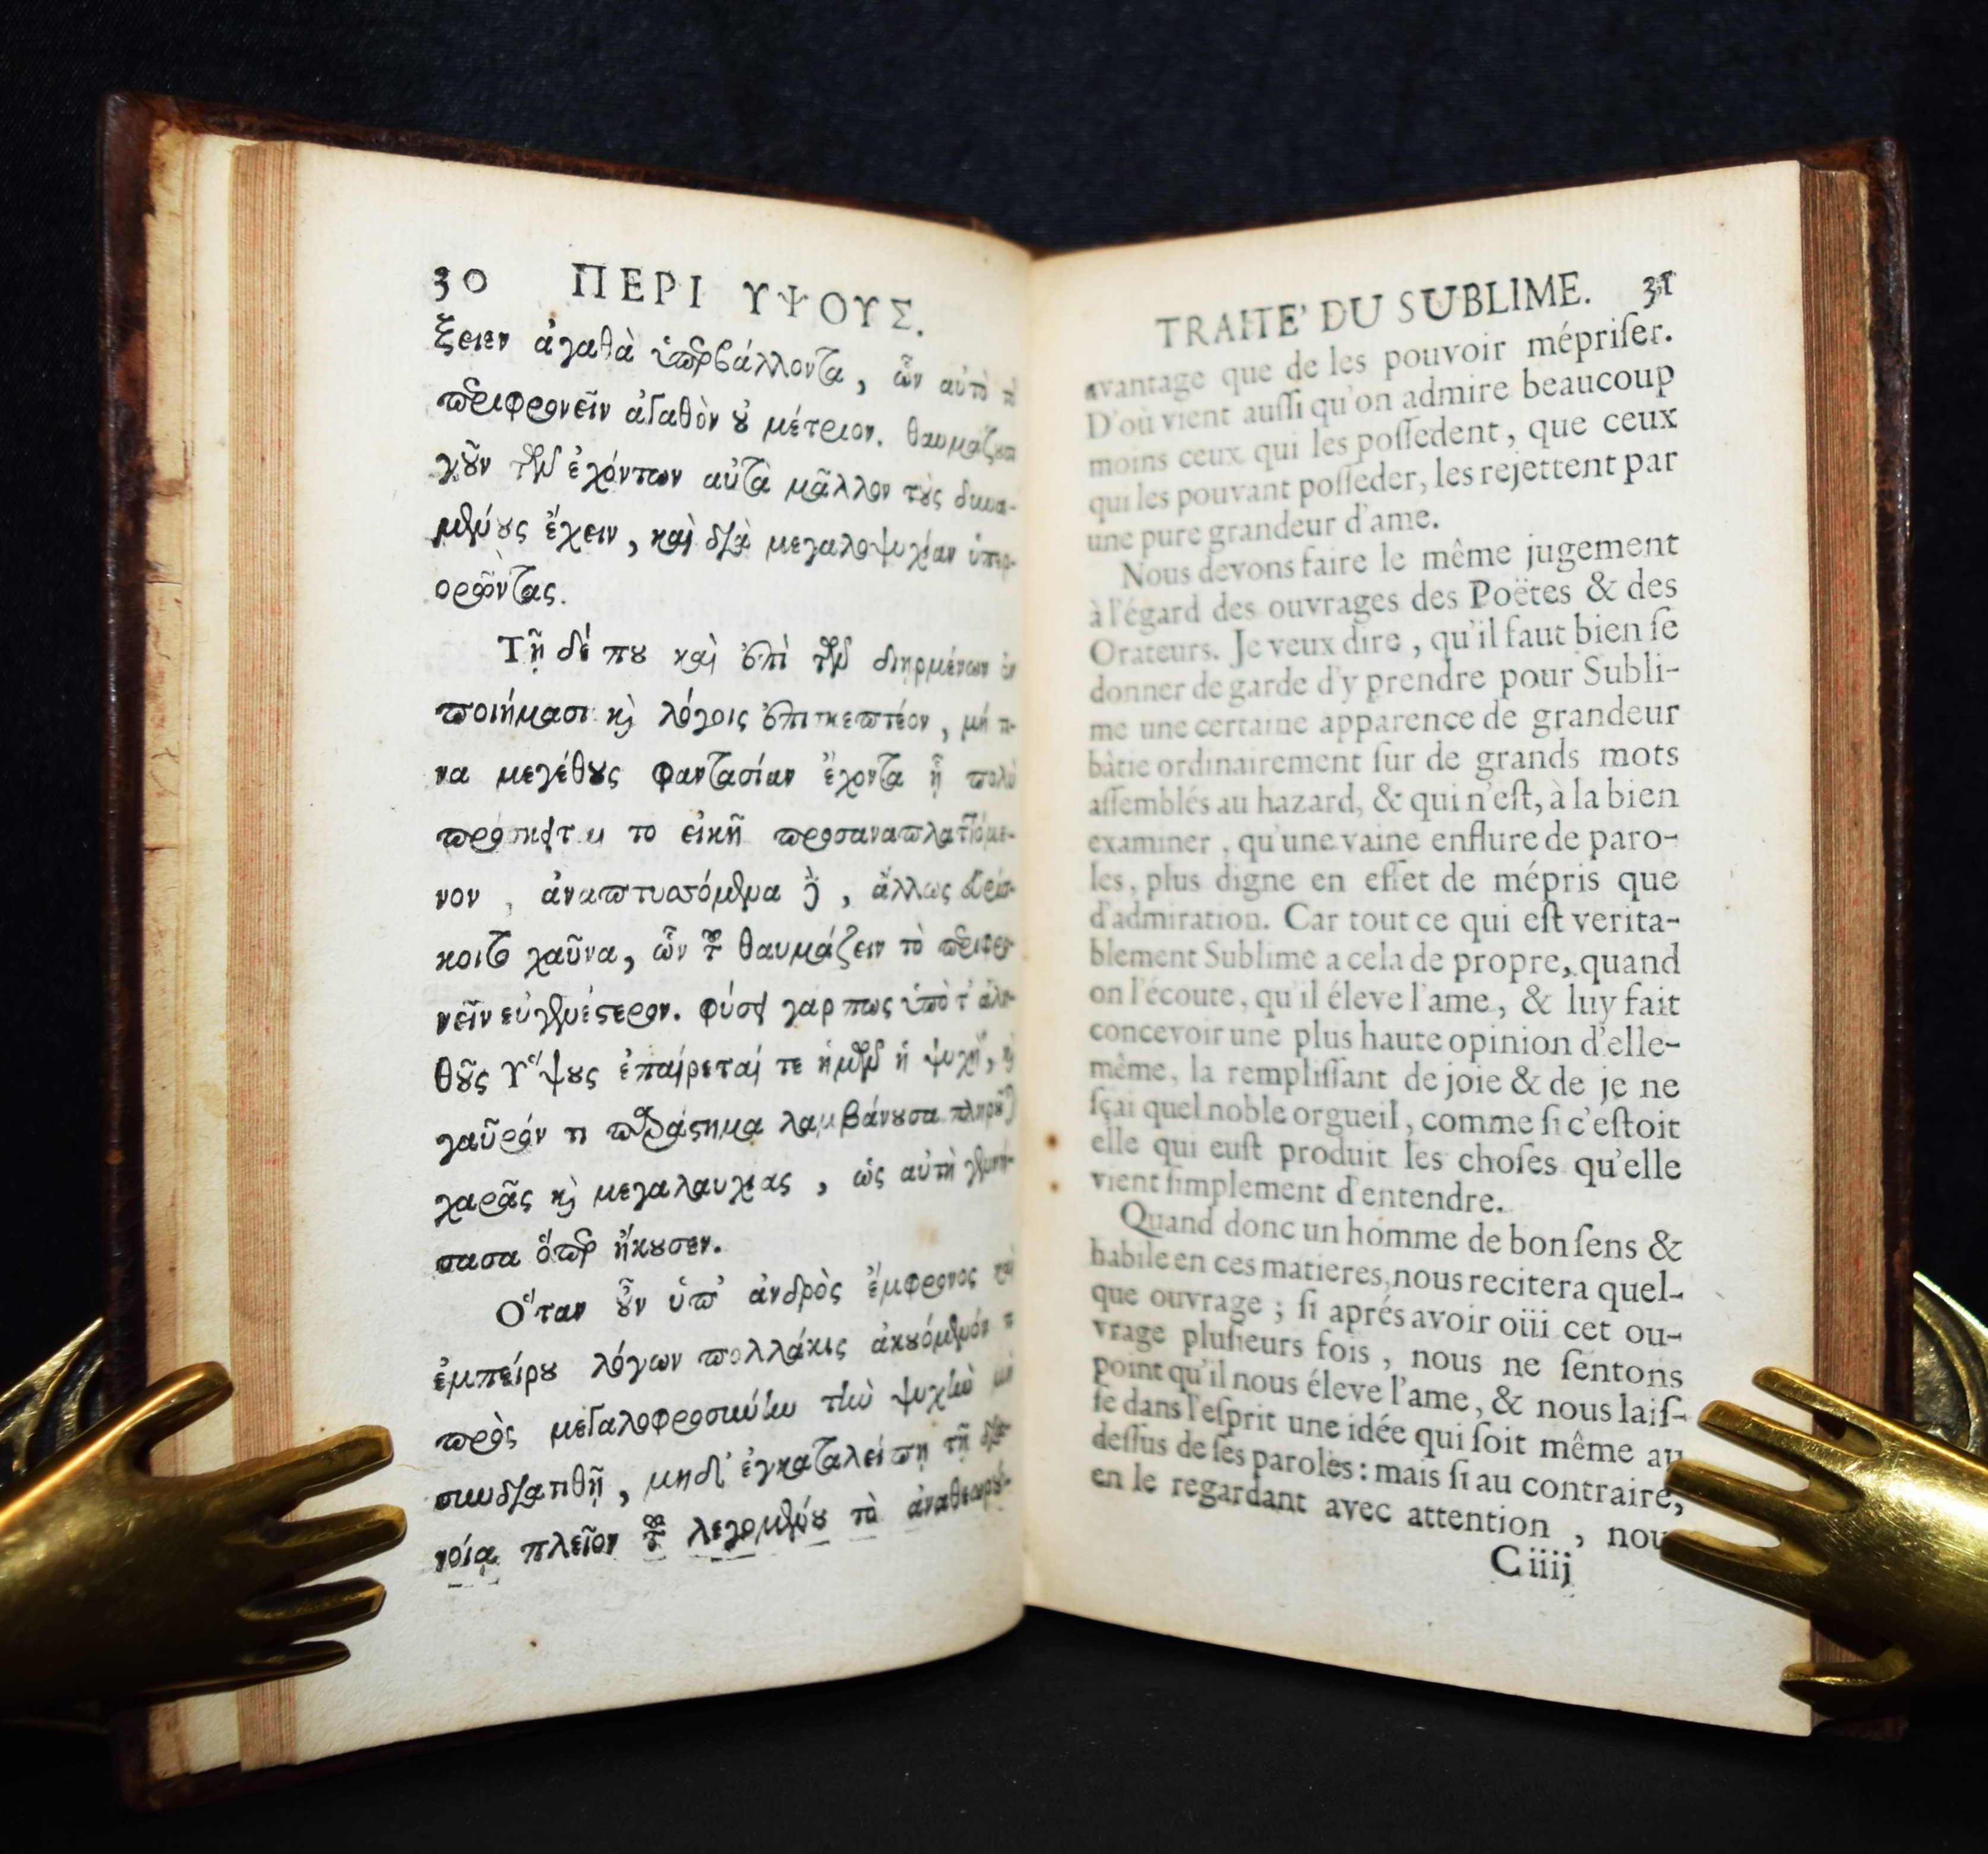 30 ΠΕΡΙ ΥΨΟΥΣ.
ξειεν ἀγαθὰ ὑπερβάλλοντα, ὧν αὐτὸ τὸ
περιφρονεῖν ἀγαθὸν ȣ μέτριον. θαυμάζȣσι
γȣ͂ν τῶν ἐχόντων αὐτὰ μᾶλλον τȣ̀ς δυνα-
μένȣς ἔχειν, καὶ διὰ μεγαλοψυχίαν ὑπερ-
ορῶντας.
Τῇ δέ πȣ καὶ ἐπὶ τῶν διῃρμένων ἐν
ποιήμασι κὶ λόγοις ἐπισκεπτέον, μή τι-
να μεγέθȣς φαντασίαν ἔχοντα ᾗ πολὺ
πρόσκειται το εἰκῆ προσαναπλαττόμε-
νον, ἀναπτυσσόμενα δὲ, ἄλλως εὑρίσ-
κοιτο χαῦνα, ὧν τȣ͂ θαυμάζειν τὸ περιφρο-
νεῖν εὐγενέστερον. φύσει γαρ πως ὑπὸ τ᾽ ἀλη-
θȣ͂ς Ὕψȣς ἐπαίρεταί τε ἡμῶν ἡ ψυχὴ, κὶ
γαῦρόν τι παράστημα λαμβάνȣσα πληρȣ͂ται
χαρᾶς κὶ μεγαλαυχίας, ὡς αὐτὴ γεννή-
σασα ὅπερ ἤκȣσεν.
Ὅταν ȣ̓͂ν ὑπ᾽ ἀνδρὸς ἔμφρονος καὶ
ἐμπείρȣ λόγων πολλάκις ἀκȣόμενόν τι
πρὸς μεγαλοφροσύνην τὴν ψυχὴν μὴ
συνδιατιθῇ, μηδ᾽ ἐγκαταλείπῃ τῇ δια-
νοίᾳ πλεῖον τȣ͂ λεγομένȣ τὸ ἀναθεωρȣ́-
TRAITE' DU SUBLIME. 31
avantage que de les pouvoir mépriſer.
D'où vient auſſi qu'on admire beaucoup
moins ceux qui les poſſedent, que ceux
qui les pouvant poſſeder, les rejettent par
une pure grandeur d'ame.
Nous devons faire le même jugement
à l'égard des ouvrages des Poëtes & des
Orateurs. Je veux dire, qu'il faut bien ſe
donner de garde d'y prendre pour Subli-
me une certaine apparence de grandeur
bâtie ordinairement ſur de grands mots
aſſemblés au hazard, & qui n'eſt, à la bien
examiner, qu'une vaine enflure de paro-
les, plus digne en effet de mépris que
d'admiration. Car tout ce qui eſt verita-
blement Sublime a cela de propre, quand
on l'écoute, qu'il éleve l'ame, & luy fait
concevoir une plus haute opinion d'elle-
même, la rempliſſant de joie & de je ne
ſçai quel noble orgueil, comme ſi c'eſtoit
elle qui euſt produit les choſes qu'elle
vient ſimplement d'entendre.
Quand donc un homme de bon ſens &
habile en ces matieres, nous recitera quel-
que ouvrage; ſi aprés avoir oüi cet ou-
vrage pluſieurs fois, nous ne ſentons
point qu'il nous éleve l'ame, & nous laiſ-
ſe dans l'eſprit une idée qui ſoit même au
deſſus de ſes paroles: mais ſi au contraire,
en le regardant avec attention, nou
C iiij